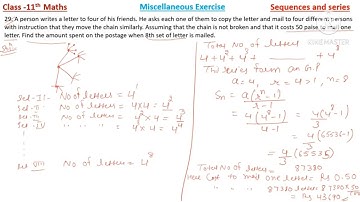 Class -11th Maths Miscellaneous Exercise Sequences and series
29; A person writes a letter to four of his friends. He asks each one of them to copy the letter and mail to four different persons
with instruction that they move the chain similarly. Assuming that the chain is not broken and that it costs 50 paise to mail one
letter. Find the amount spent on the postage when 8th set of letter is mailed.
Set-I:- No of letters = 4¹
Set-II No of letters = 4×4 = 4²
Set-III " " " = 4²×4 = 4³
Set-IV " " " = 4³×4 = 4⁴
Set VIII No of letter = 4⁸
Total No of letters
4+4²+4³+ 4⁸
The series form an G.P
a=4, r=4>1, n=8
Sn = a(rⁿ-1)/r-1
= 4(4⁸-1)/4-1 = 4(4⁸-1)/3
= 4/3 (65536-1)
= 4/3 (65535)
Total No of letters = 87380
Cost to mail one letter = Rs 0.50
" " " 87380 letters = 87380×50/100
= Rs 43690